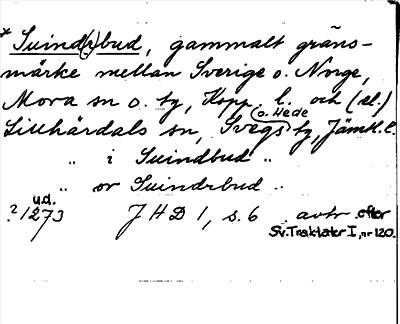 * Suind(r)bud, gammalt gräns-
märke mellan Sverige o. Norge,
Mora sn o. tg, Kopp. l. och (el.)
o. Hede
Lillhärdals sn, Svegs tg, Jämtl. l.
„ i Suindbud „
„ or Suindrbud „
u.d.
? 1273 JHD 1, s. 6 avtr efter
Sv. Traktater I, nr 120.